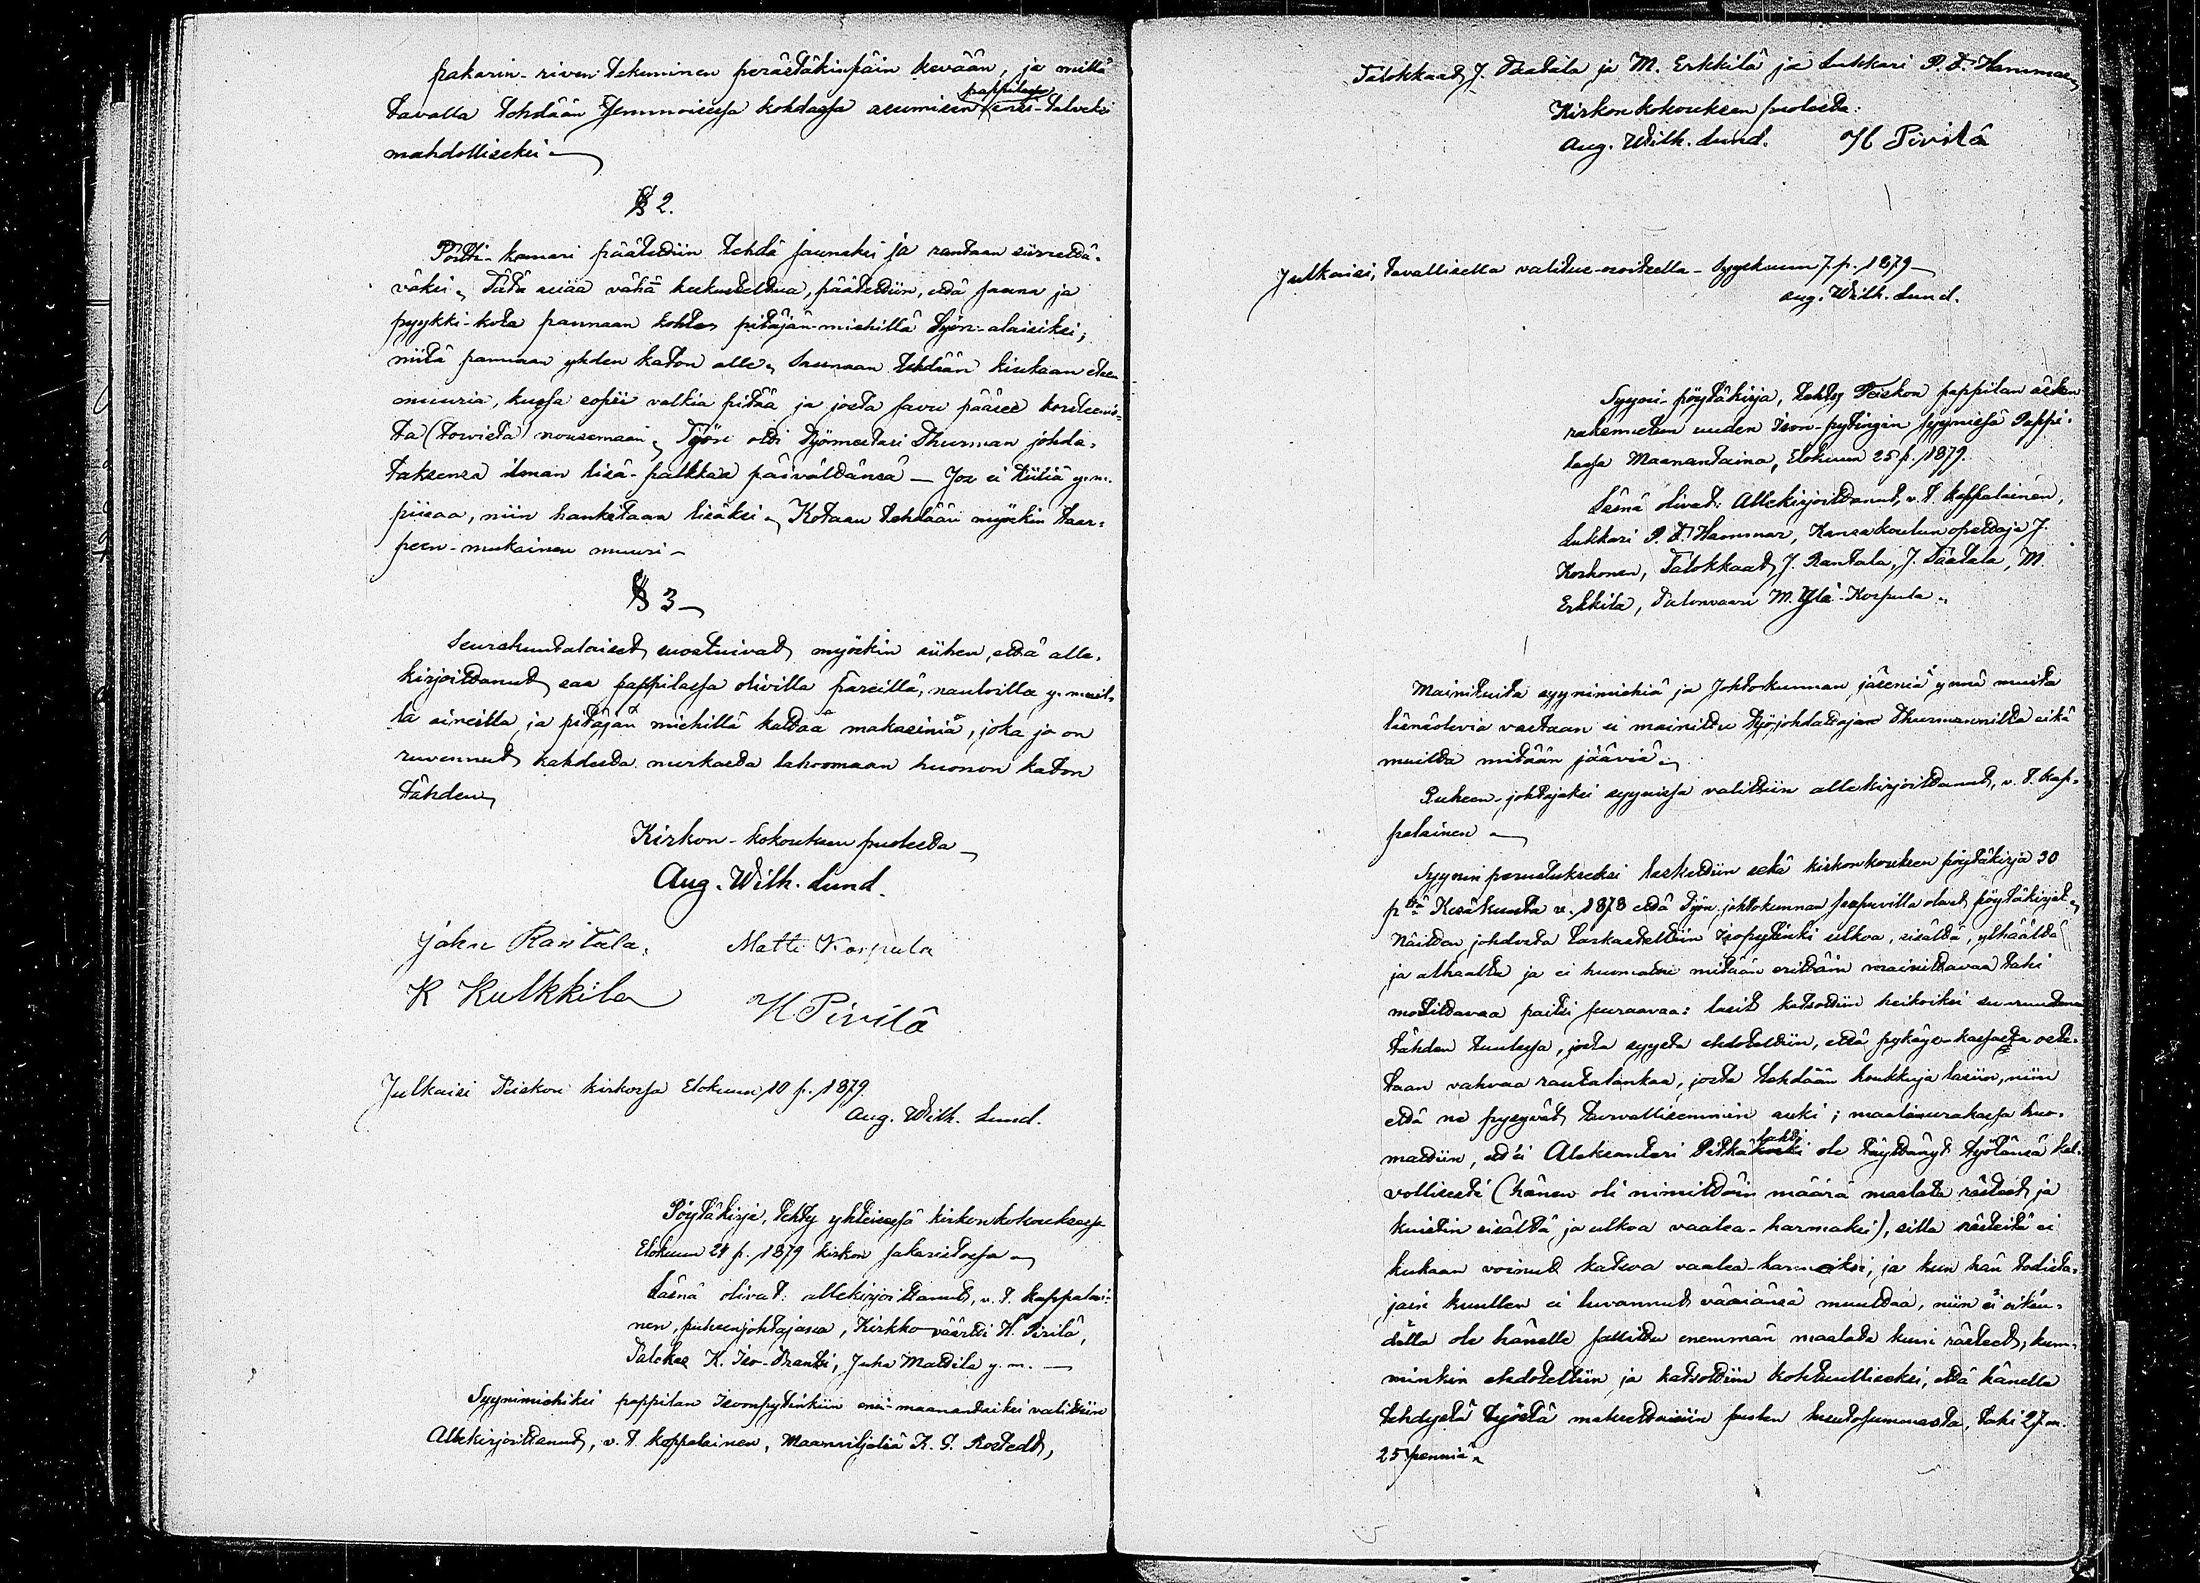 pakarin-riven tekeminen perästäkinpäin kevään, ja millä
pappilassa
tavalla tehdään semmoisessa kohdassa asumisen ensi-talveksi
mahdolliseksi
§ 2.
Pöntti-kamari päätettiin tehdä saunaksi ja rantaan siirrettä-
väksi. Tätä asiaa vähä keskusteltua, päätettiin, että sauna ja
pyykki-kota pannaan kohta pitäjän-miehillä työn-alaisiksi;
niitä pannaan yhden katon alle. Saunaan tehdään kiukaan eteen
muuria, kussa sopii valkia pitää ja josta savu pääsee korsteenis-
ta (torvista) nousemaan. Työn otti työmestari Thurman johda-
taksensa ilman lisä-palkkaa päivältänsä — Jos ei tiiliä y.m.
piisaa, niin hankitaan lisäksi. Kotaan tehdään myöskin tar-
peen-mukainen muuri —
§ 3 —
Seurakuntalaiset suostuivat myöskin siihen, että alle-
kirjoittanut saa pappilassa olivilla päreillä, nauloilla y.m. muil-
la aineilla ja pitäjän miehillä kattaa makasiniä, joka jo on
ruvennut kahdesta nurkasta lahoomaan huonon katon
tähden
Kirkon-kokouksen puolesta
Aug. Wilh. Lund.
Juha Rantala. Matti Korpula
K Kulkkila H Pirilä
Julkaisi Teiskon kirkossa Elokuun 10 p. 1879.
Aug. Wilh. Lund.
Pöytäkirja, tehty yhteisessä kirkonkokouksessa
Elokuun 24 p. 1879 kirkon sakaristossa
Läsnä olivat: allekirjoittanut, v.t. kappalai-
nen, puheenjohtajana, Kirkkovääräti H. Pirilä,
Talokas K. Iso- Juha Mattila y.m. —
Syynimiehiksi pappilan Isoonpytinkiin ensi-maanantaiksi valittiin
Allekirjoittanut, v.t. kappalainen, Maanviljeliä K. G. Rostedt,
Talokkaat J. Taatala ja M. Erkkilä ja Lukkari P. F. Hammar
Kirkonkokouksen puolesta:
Aug. Wilh. Lund. H Pirilä
Julkaisi, tavallisella valitus-osoitteella - Syyskuun 7. p. 1879 —
Aug. Wilh. Lund.
Syyni-pöytäkirja, tehty Teiskon pappilan äsken
rakennetun uuden Ison-pytingin syynissä Pappi-
lassa Maanantaina, Elokuun 25 p. 1879.
Läsnä olivat: Allekirjoittanut, v.t. kappalainen,
Lukkari P. F. Hammar, Kansakoulun opettaja J.
Korhonen, Talokkaat J. Rantala, J. Taatala, M.
Erkkilä, M. Ylä-Korpula.
Mainituita syynimiehiä ja Johtokunnan jäseniä ynnä muita
läsnäolevia vastaan ei mainittu työjohdattajan Thurmannilta eikä
muilta mitään jääviä.
Puheen-johtajaksi syynissä valittiin allekirjoittanut, v.t. kap-
palainen —
Syynin perustukseksi laskettiin sekä kirkonkouksen pöytäkirja 30
p:ltä Kesäkuuta v. 1878 että Työn johtokunnan saapuvilla olevat pöytäkirjat.
Näitten johdosta tarkasteltiin Isopytinki ulkoa, sisältä, ylhäältä
ja alhaalta ja ei huomattu mitään erittäin mainittavaa tahi
moitittavaa paitsi seuraavaa: lasit katsottiin heikoiksi suuruutensa
tähden tuulessa, josta syystä ehdotettiin, että pykäys-kassasta oste-
taan vahvaa rautalankaa, josta tehdään koukkuja lasiin, niin
että ne pysyvät turvallisemmin auki; maalausurakassa huo-
lahti
mattiin, ett'ei Aleksanteri Pitkäkoski ole täyttänyt työtänsä kel-
vollisesti (hänen oli nimittäin määrä maalata räästeet ja
kuistin sisältä ja ulkoa vaalea-harmaksi), sillä räästeitä ei
kukaan voinut katsoa vaalea-harmaiksi, ja kun hän todista-
jain kuullen ei luvannut vääriänsä muuttaa, niin ei oikeu-
della ole hänelle sallittu enemmän maalata kuin räästeet, kum-
minkin ehdotettiin ja katsottiin kohtuulliseksi, että hänelle
tehdystä työstä maksettaisiin puolen huutosummasta, tahi 27 m.
25 penniä.